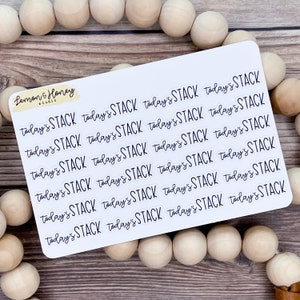 Lemon & Honey
STUDIO
today's STACK today's STACK today's STACK today's STACK
today's STACK today's STACK today's STACK today's STACK
today's STACK today's STACK today's STACK today's STACK
today's STACK today's STACK today's STACK today's STACK
today's STACK today's STACK today's STACK today's STACK
today's STACK today's STACK today's STACK today's STACK